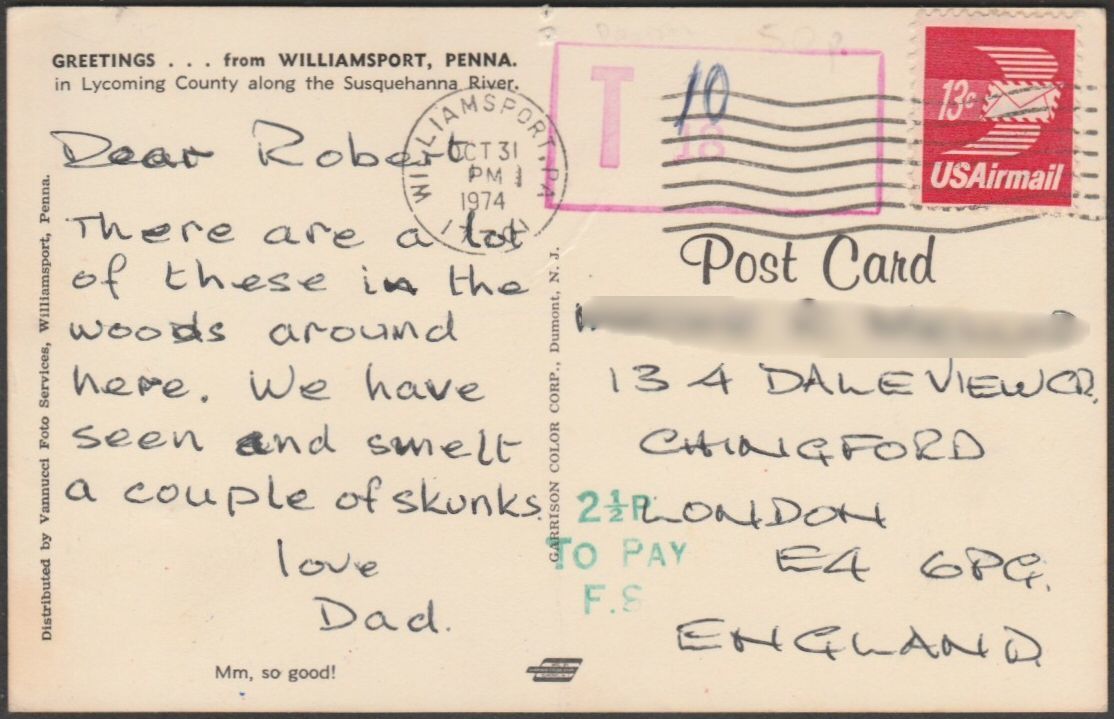 GREETINGS . . . from WILLIAMSPORT, PENNA.
in Lycoming County along the Susquehanna River.
Dear Robert
There are a lot
of these in the
woods around
here. We have
seen and smelt
a couple of skunks.
love
Dad.
Mm, so good!
Distributed by Vannucci Foto Services, Williamsport, Penna.
GARRISON COLOR CORP., Dumont, N. J.
WILLIAMSPORT, PA
OCT 31
PM
1974
T
10
18
13c
USAirmail
Post Card
134 DALEVIEW CR.
CHINGFORD
LONDON
E4 6PG.
ENGLAND
2½P
TO PAY
F.S